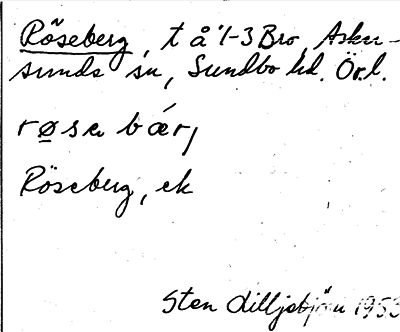 Röseberg, t å 1-3 Bro, Asker-
sunds sn, Sundbo hd. Örl.
røse bær,
Röseberg, ek
Sten Lilljebjörn 1953